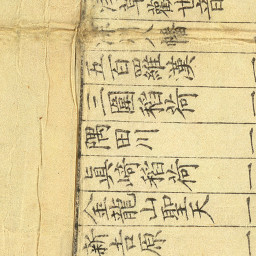 觀世音
八幡
五百羅漢
三圍稲荷
隅田川
眞崎稲荷
金龍山聖天
新吉原